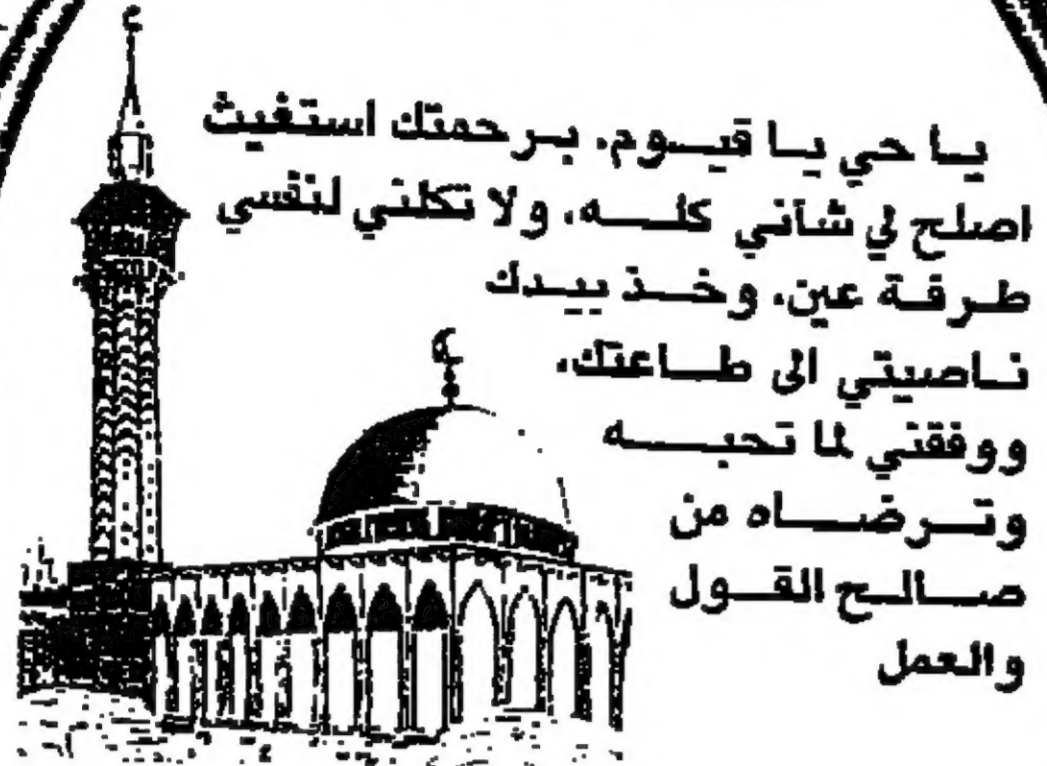 يا حي يا قيوم. برحمتك استغيث
اصلح لي شأني كله، ولا تكلني لنفسي
طرفة عين، وخذ بيدك
ناصيتي الى طاعتك،
ووفقتي لما تحبه
وترضاه من
صالح القول
والعمل